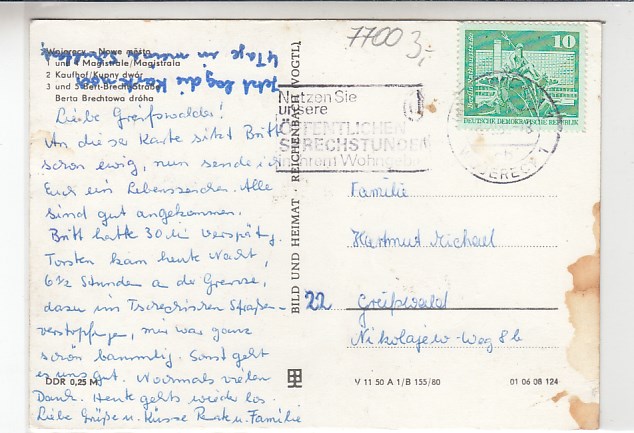 Wojerecy - Nowe město
1 und 4 Magistrale/Magistrala
2 Kaufhof/Kupny dwór
3 und 5 Bert-Brecht-Straße
Berta Brechtowa dróha
Jetzt lag die Karte noch
4 Tage in meiner
Liebe Greifswalder!
An dieser Karte sitzt Britt
schon ewig, nun sende ich
Euch ein Lebenszeichen. Alle
sind gut angekommen.
Britt hatte 30 min Verspätg,
Torsten kam heute Nacht,
6 1/2 Stunden an der Grenze,
dazu im Tschechischen Straßen-
verstopfungen, mir war ganz
schön bammlig. Sonst geht
es uns gut. Nochmals vielen
Dank. Heute gehts wieder los.
Liebe Grüße u. Küsse Renate u. Familie
DDR 0,25 M
BILD UND HEIMAT · REICHENBACH (VOGTL)
7700 3,-
Nutzen Sie
unsere
ÖFFENTLICHEN
SPRECHSTUNDEN
in Ihrem Wohngebiet
10
DEUTSCHE DEMOKRATISCHE REPUBLIK
Familie
Hartmut Michael
22 Greifswald
Nikolajew-Weg 8b
V 11 50 A 1/B 155/80
01 06 08 124